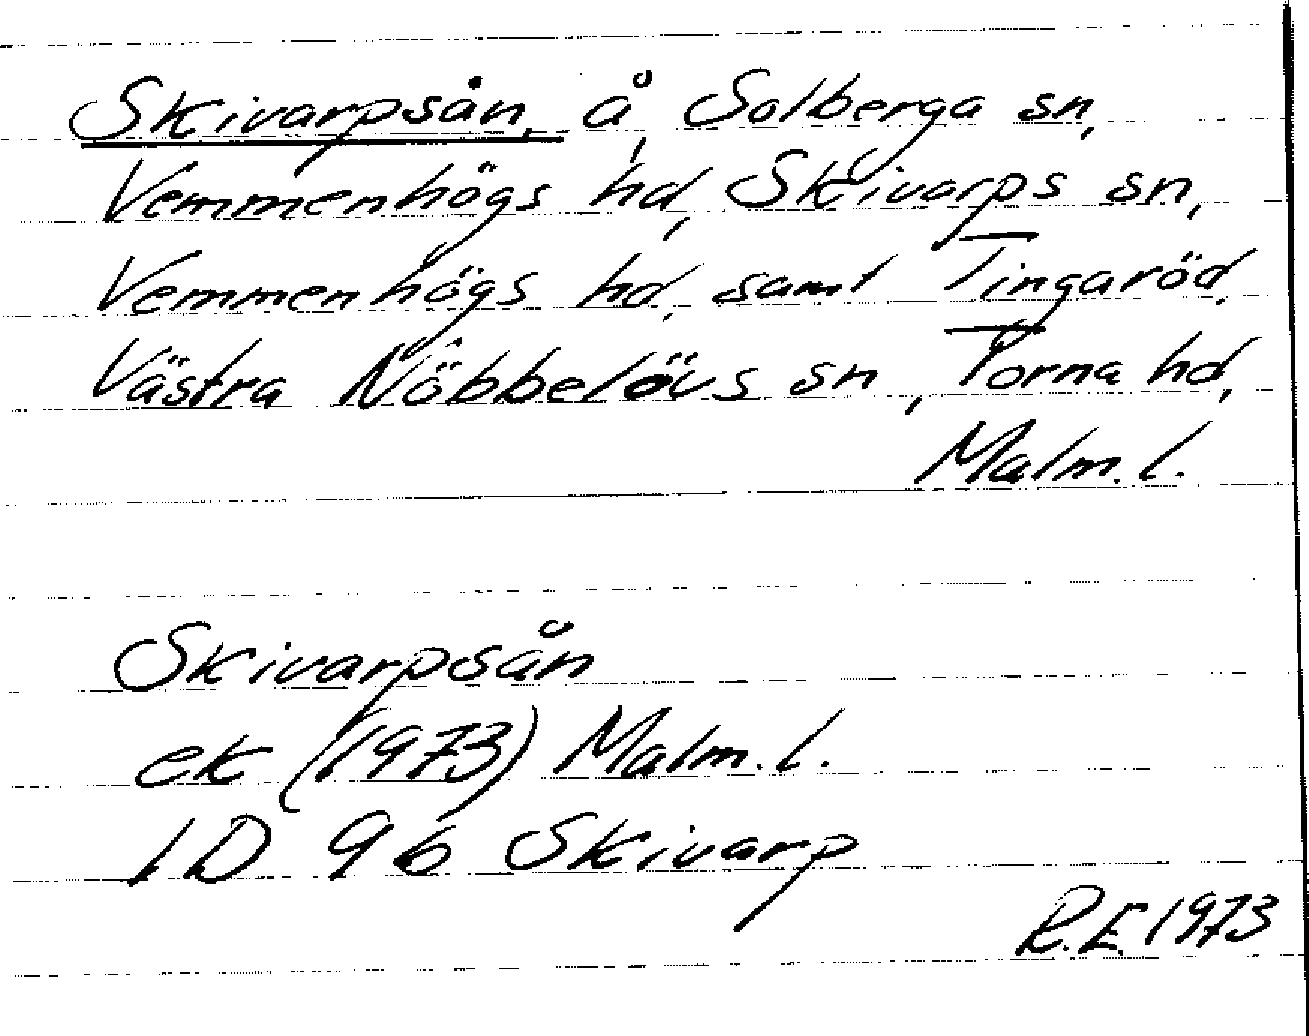 Skivarpsån, å, Solberga sn,
Vemmenhögs hd, Skivarps sn,
Vemmenhögs hd, samt Tingaröd,
Västra Nöbbelövs sn, Torna hd,
Malm. l.
Skivarpsån
ek (1973) Malm. l.
1D 9b Skivarp
R.E. 1973